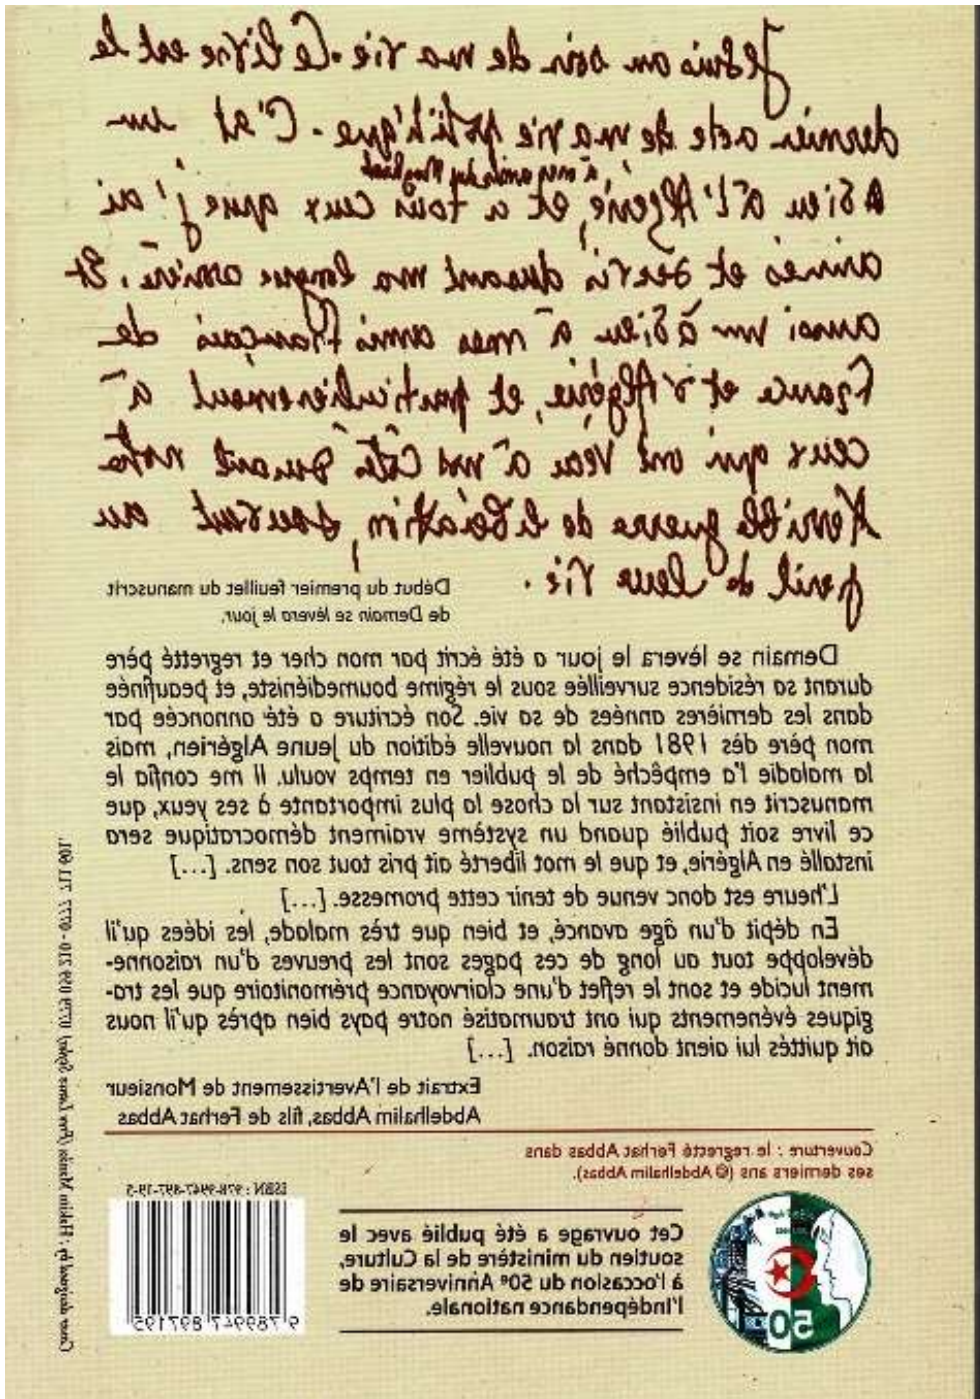 Je suis au soir de ma vie. Ce livre est le
dernier acte de ma vie politique. C'est un
à mes amis du Maghreb
adieu à l'Algérie, et à tous ceux que j'ai
aimés et servis durant ma longue carrière. Et
aussi un adieu à mes amis Français de
France et d'Algérie, et particulièrement à
ceux qui ont vécu à nos côtés durant notre
terrible guerre de libération, souvent au
péril de leur vie.
Début du premier feuillet du manuscrit
de Demain se lèvera le jour.
Demain se lèvera le jour a été écrit par mon cher et regretté père
durant sa résidence surveillée sous le régime boumediéniste, et peaufinée
dans les dernières années de sa vie. Son écriture a été annoncée par
mon père dès 1981 dans la nouvelle édition du Jeune Algérien, mais
la maladie l'a empêché de le publier en temps voulu. Il me confia le
manuscrit en insistant sur la chose la plus importante à ses yeux, que
ce livre soit publié quand un système vraiment démocratique sera
installé en Algérie, et que le mot liberté ait pris tout son sens. [...]
L'heure est donc venue de tenir cette promesse. [...]
En dépit d'un âge avancé, et bien que très malade, les idées qu'il
développe tout au long de ces pages sont les preuves d'un raisonne-
ment lucide et sont le reflet d'une clairvoyance prémonitoire que les tra-
giques événements qui ont traumatisé notre pays bien après qu'il nous
ait quittés lui aient donné raison. [...]
Extrait de l'Avertissement de Monsieur
Abdelhalim Abbas, fils de Ferhat Abbas
Couverture : le regretté Ferhat Abbas dans
ses derniers ans (© Abdelhalim Abbas).
Cet ouvrage a été publié avec le
soutien du ministère de la Culture,
à l'occasion du 50e Anniversaire de
l'Indépendance nationale.
50
ISBN : 978-9947-897-19-5
9 789947 897195
Cover design by : Hakim